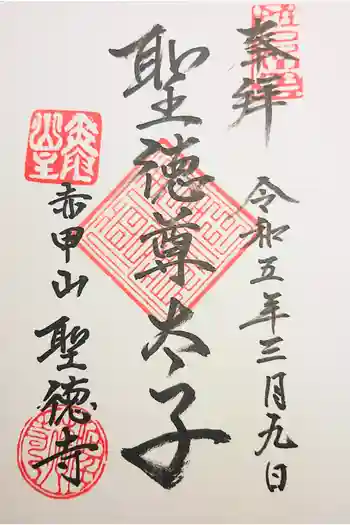 奉拝
令和五年三月九日
聖徳尊太子
赤甲山
聖徳寺